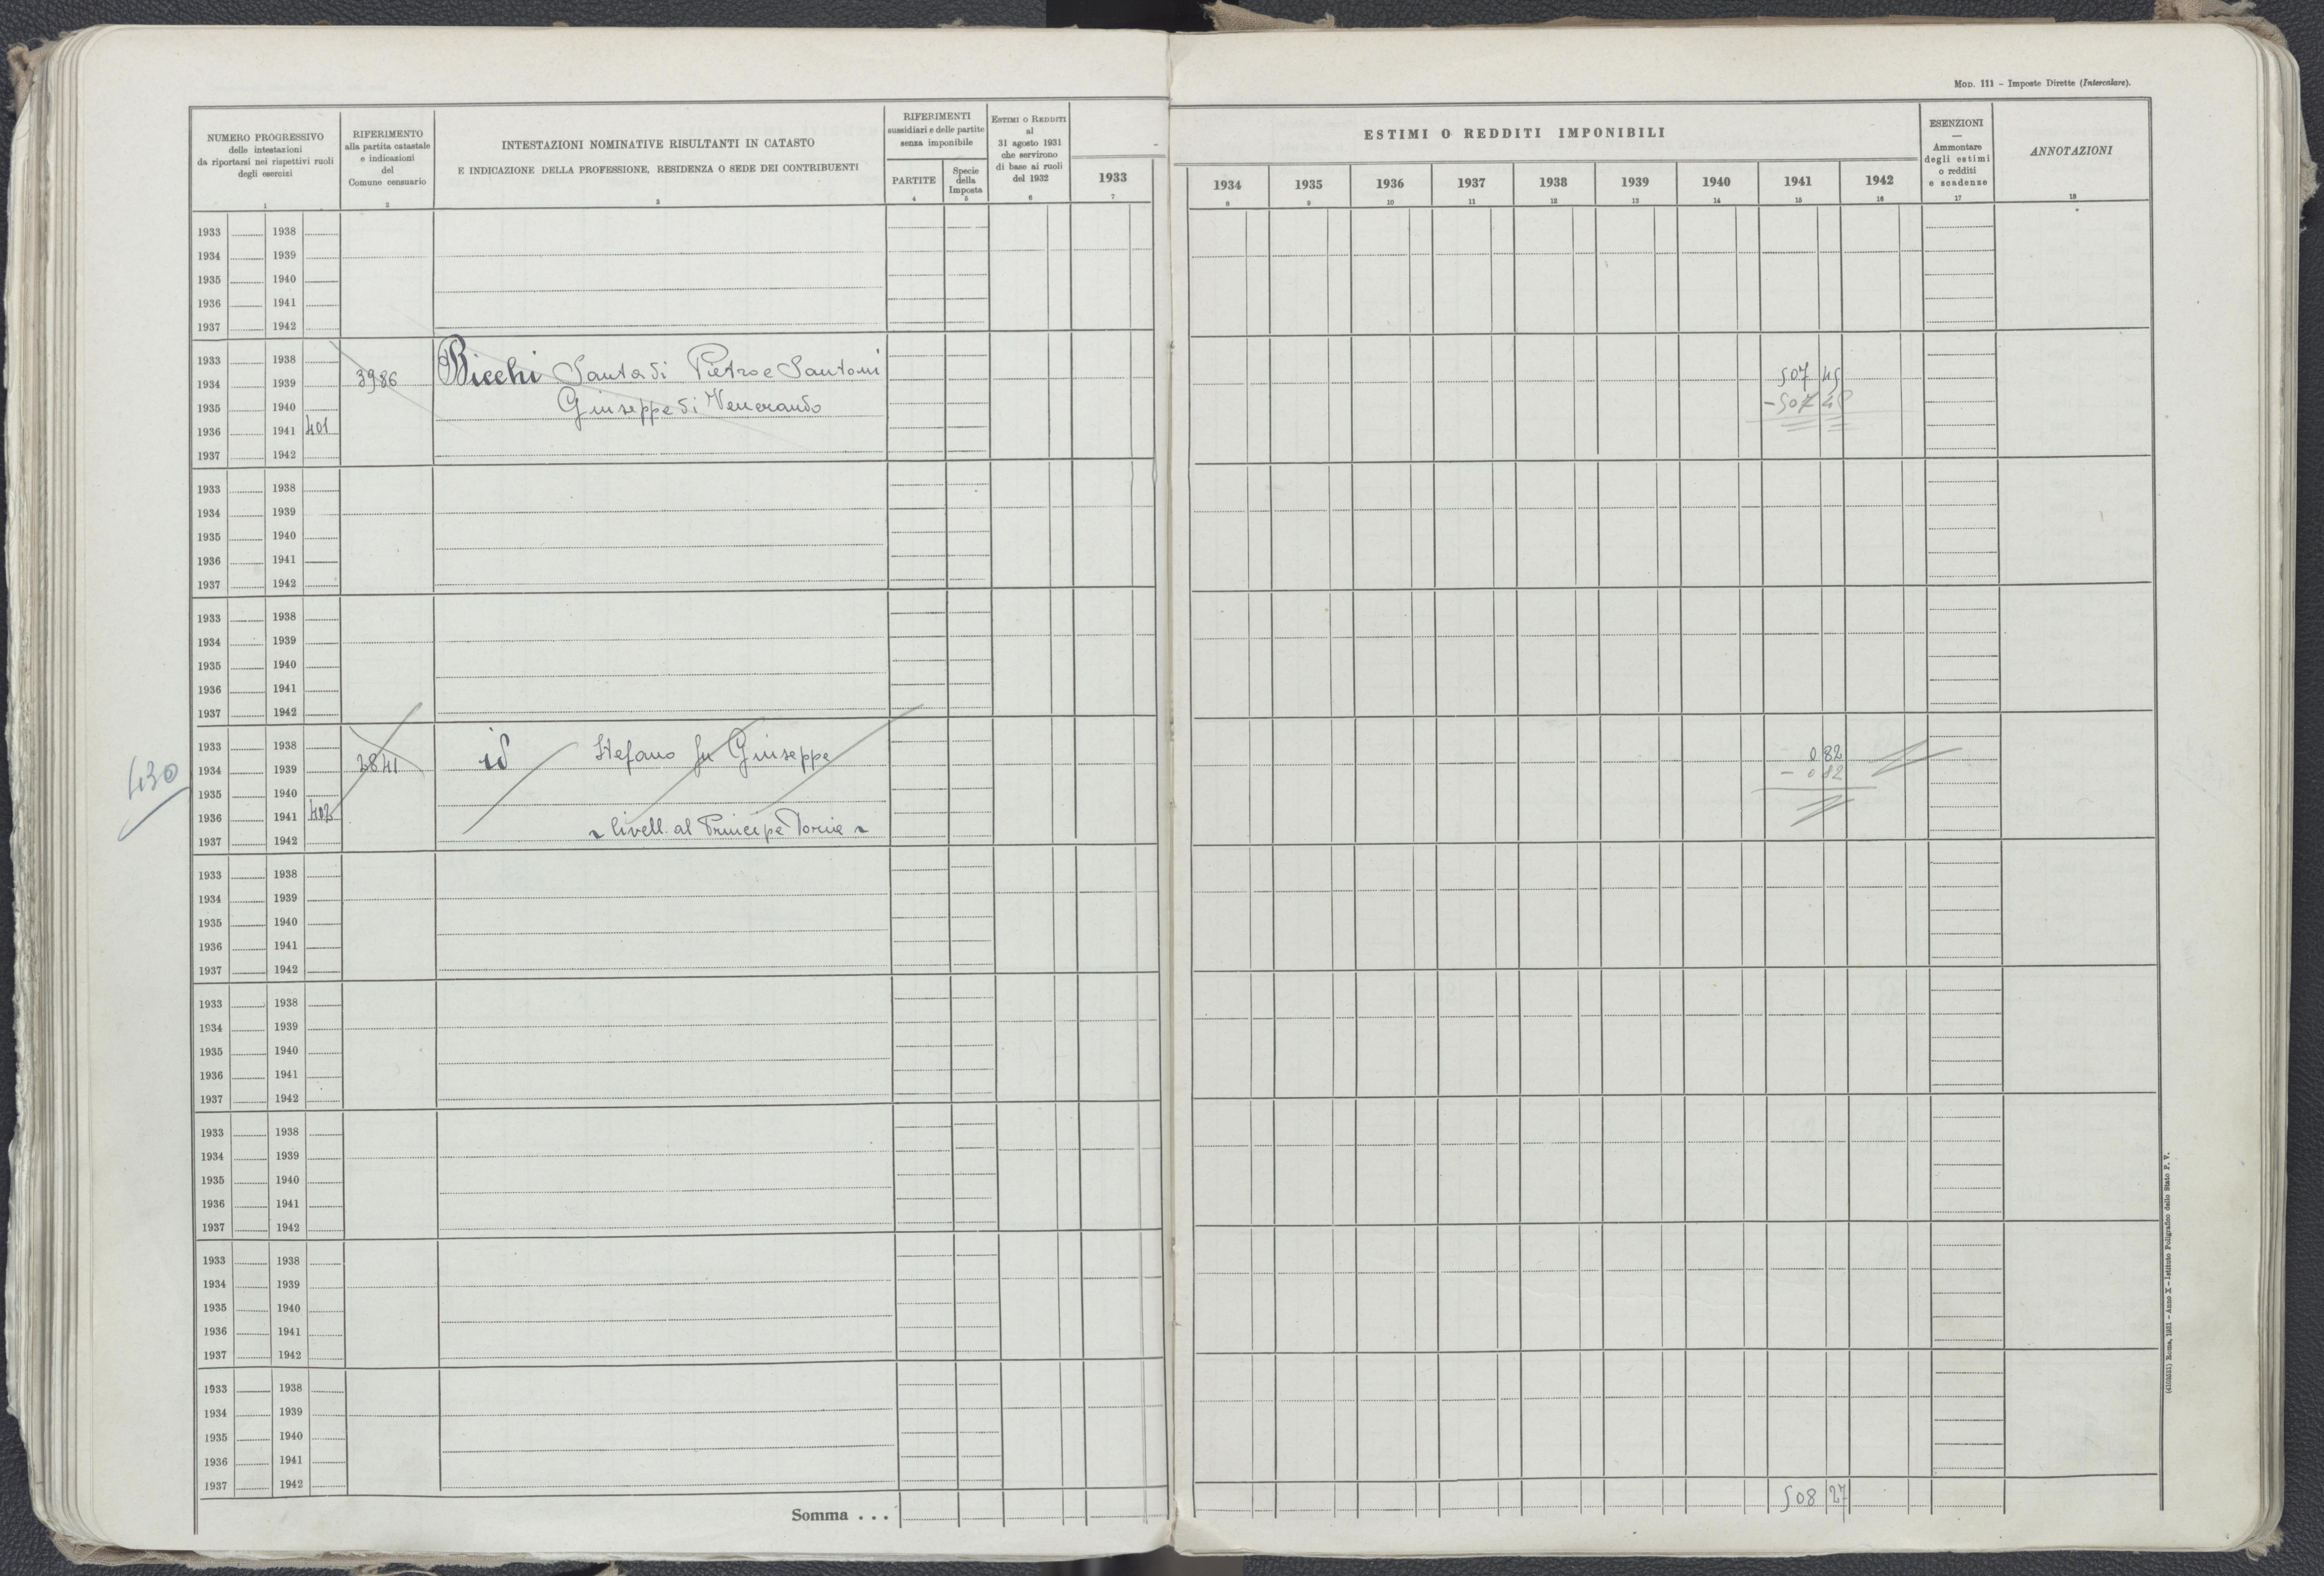 Mod. 111 – Imposte Dirette (Intercalare).
NUMERO PROGRESSIVO
delle intestazioni
da riportarsi nei rispettivi ruoli
degli esercizi
1
RIFERIMENTO
alla partita catastale
e indicazioni
del
Comune censuario
2
INTESTAZIONI NOMINATIVE RISULTANTI IN CATASTO
E INDICAZIONE DELLA PROFESSIONE, RESIDENZA O SEDE DEI CONTRIBUENTI
3
RIFERIMENTI
sussidiari e delle partite
senza imponibile
PARTITE
4
Specie
della
Imposta
5
Estimi o Redditi
al
31 agosto 1931
che servirono
di base ai ruoli
del 1932
6
1933
7
ESTIMI O REDDITI IMPONIBILI
1934 1935 1936 1937 1938 1939 1940 1941 1942
8 9 10 11 12 13 14 15 16
ESENZIONI
—
Ammontare
degli estimi
o redditi
e scadenze
17
ANNOTAZIONI
18
1933 1938
1934 1939
1935 1940
1936 1941
1937 1942
1933 1938
1934 1939 3986 Bicchi Santa di Pietro e Santoni 507 45
1935 1940 Giuseppe di Venerando -507 45
1936 1941 401
1937 1942
1933 1938
1934 1939
1935 1940
1936 1941
1937 1942
1933 1938
1934 1939
1935 1940
1936 1941
1937 1942
1933 1938 id Stefano fu Giuseppe 0 82
1934 1939 2841 - 0 82
430
1935 1940
1936 1941 402
1937 1942 livell. al Principe Torlonia
1933 1938
1934 1939
1935 1940
1936 1941
1937 1942
1933 1938
1934 1939
1935 1940
1936 1941
1937 1942
1933 1938
1934 1939
1935 1940
1936 1941
1937 1942
1933 1938
1934 1939
1935 1940
1936 1941
1937 1942
1933 1938
1934 1939
1935 1940
1936 1941
1937 1942
Somma . . . 508 27
(4103251) Roma, 1931 – Anno X – Istituto Poligrafico dello Stato P. V.